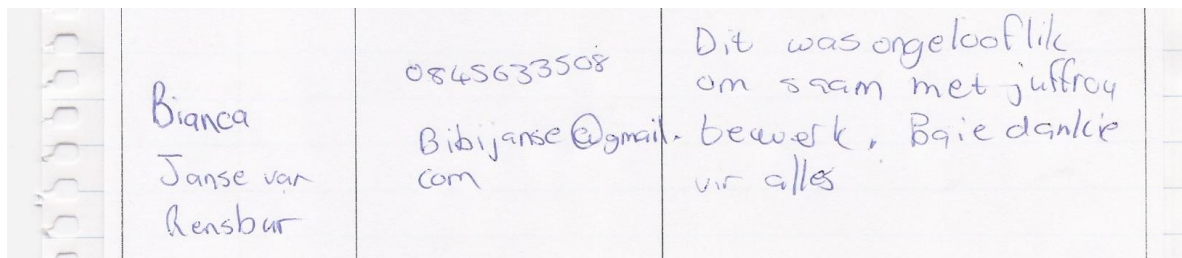 Bianca
Janse van
Rensbur
0845633508
Bibijanse@gmail.
com
Dit was ongelooflik
om saam met juffrou
bewerk. Baie dankie
vir alles